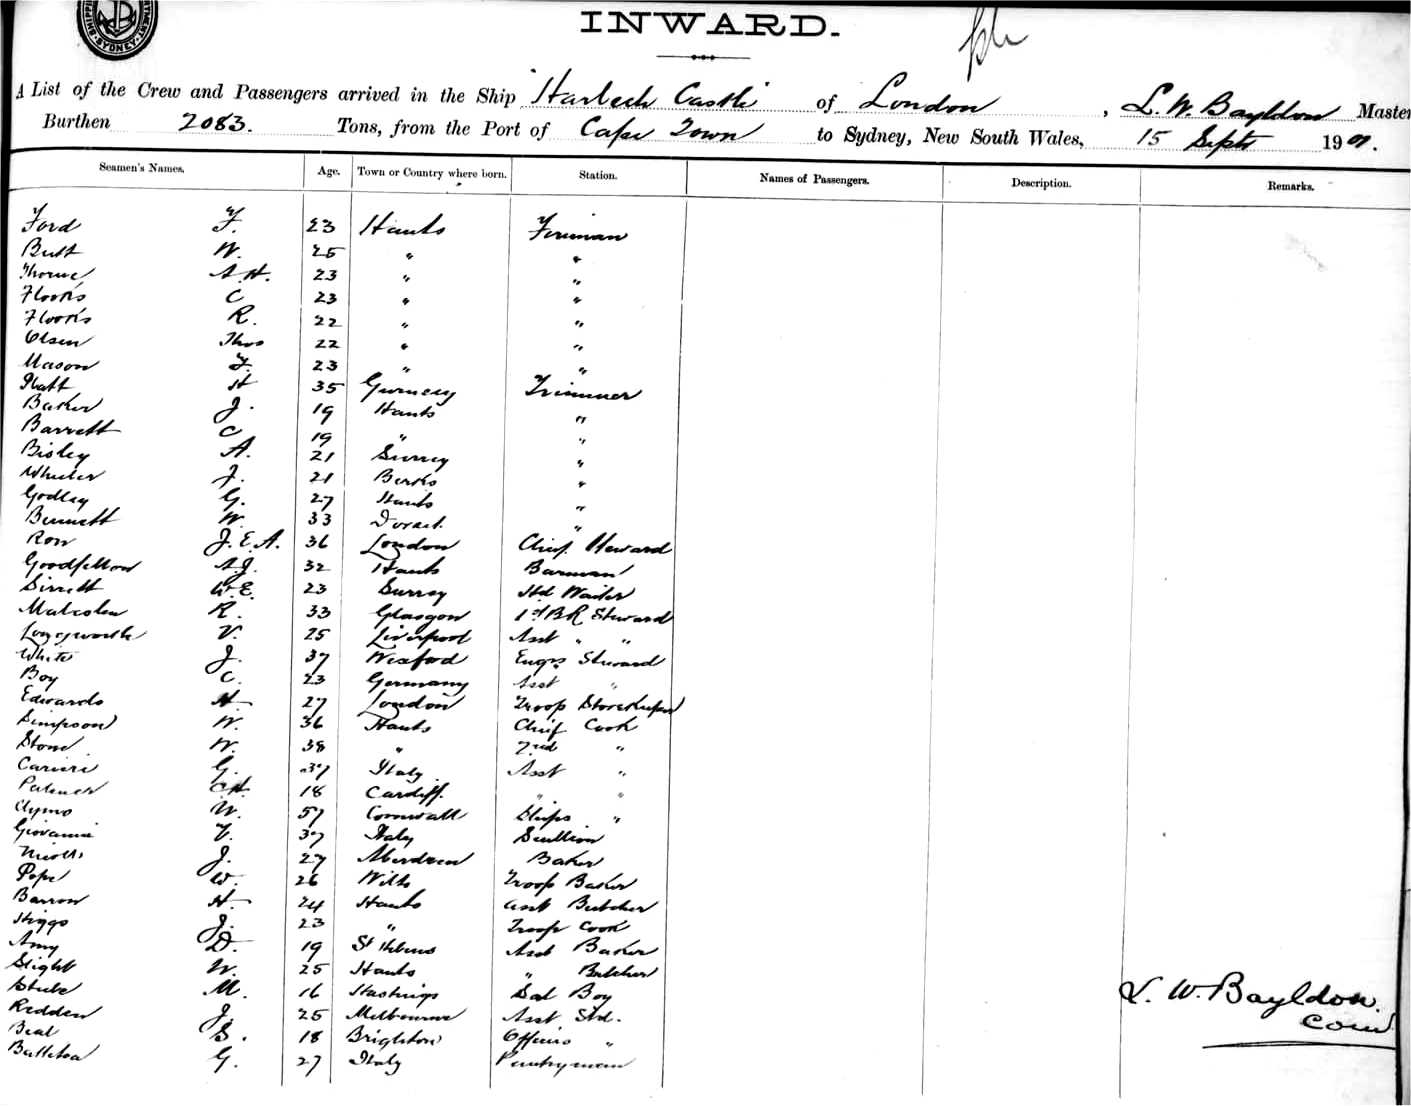 SYDNEY
INWARD.
A List of the Crew and Passengers arrived in the Ship "Harlech Castle of London, L. W. Bayldon Master
Burthen 2083. Tons, from the Port of Cape Town to Sydney, New South Wales, 15 Sept 1901.
Seamen's Names. Age. Town or Country where born. Station. Names of Passengers. Description. Remarks.
Ford F. 23 Hants Fireman
Butt W. 25 " "
Thorne A H. 23 " "
Flooks C 23 " "
Flooks R. 22 " "
Olsen Thos 22 " "
Mason F. 23 " "
Platt H 35 Guernsey Trimmer
Baker J. 19 Hants "
Barrett C 19 " "
Bisley A. 21 Surrey "
Wheeler J. 21 Berks "
Godley G. 27 Hants "
Bennett W. 33 Dorset. "
Row J. E. A. 36 London Chief Steward
Goodfellow A J. 32 Hants Barman
Sirrett W. E. 23 Surrey Hd Waiter
Malcolm R. 33 Glasgow 1st B R Steward
Longworth V. 25 Liverpool Asst " "
White J. 37 Wexford Engrs Steward
Boy C. 23 Germany Asst "
Edwards H 27 London Troop Storekeeper
Simpson W. 36 Hants Chief Cook
Stone W. 38 " 2nd "
Cariere G. 37 Italy Asst "
Palmer C H. 18 Cardiff. " "
Clymo W. 57 Cornwall Ships "
Giovanni V. 37 Italy Scullion
J. 27 Aberdeen Baker
Pope W. 26 Wilts Troop Baker
Barron H 24 Hants Asst Butcher
Higgs J. 23 " Troop Cook
Amy D. 19 St Helens Asst Baker
Slight W. 25 Hants " Butcher
M. 16 Hastings Bed Boy
L. W. Bayldon.
Com
Redden J. 25 Melbourne Asst Std.
Beal S. 18 Brighton Officers "
G. 27 Italy Pantryman